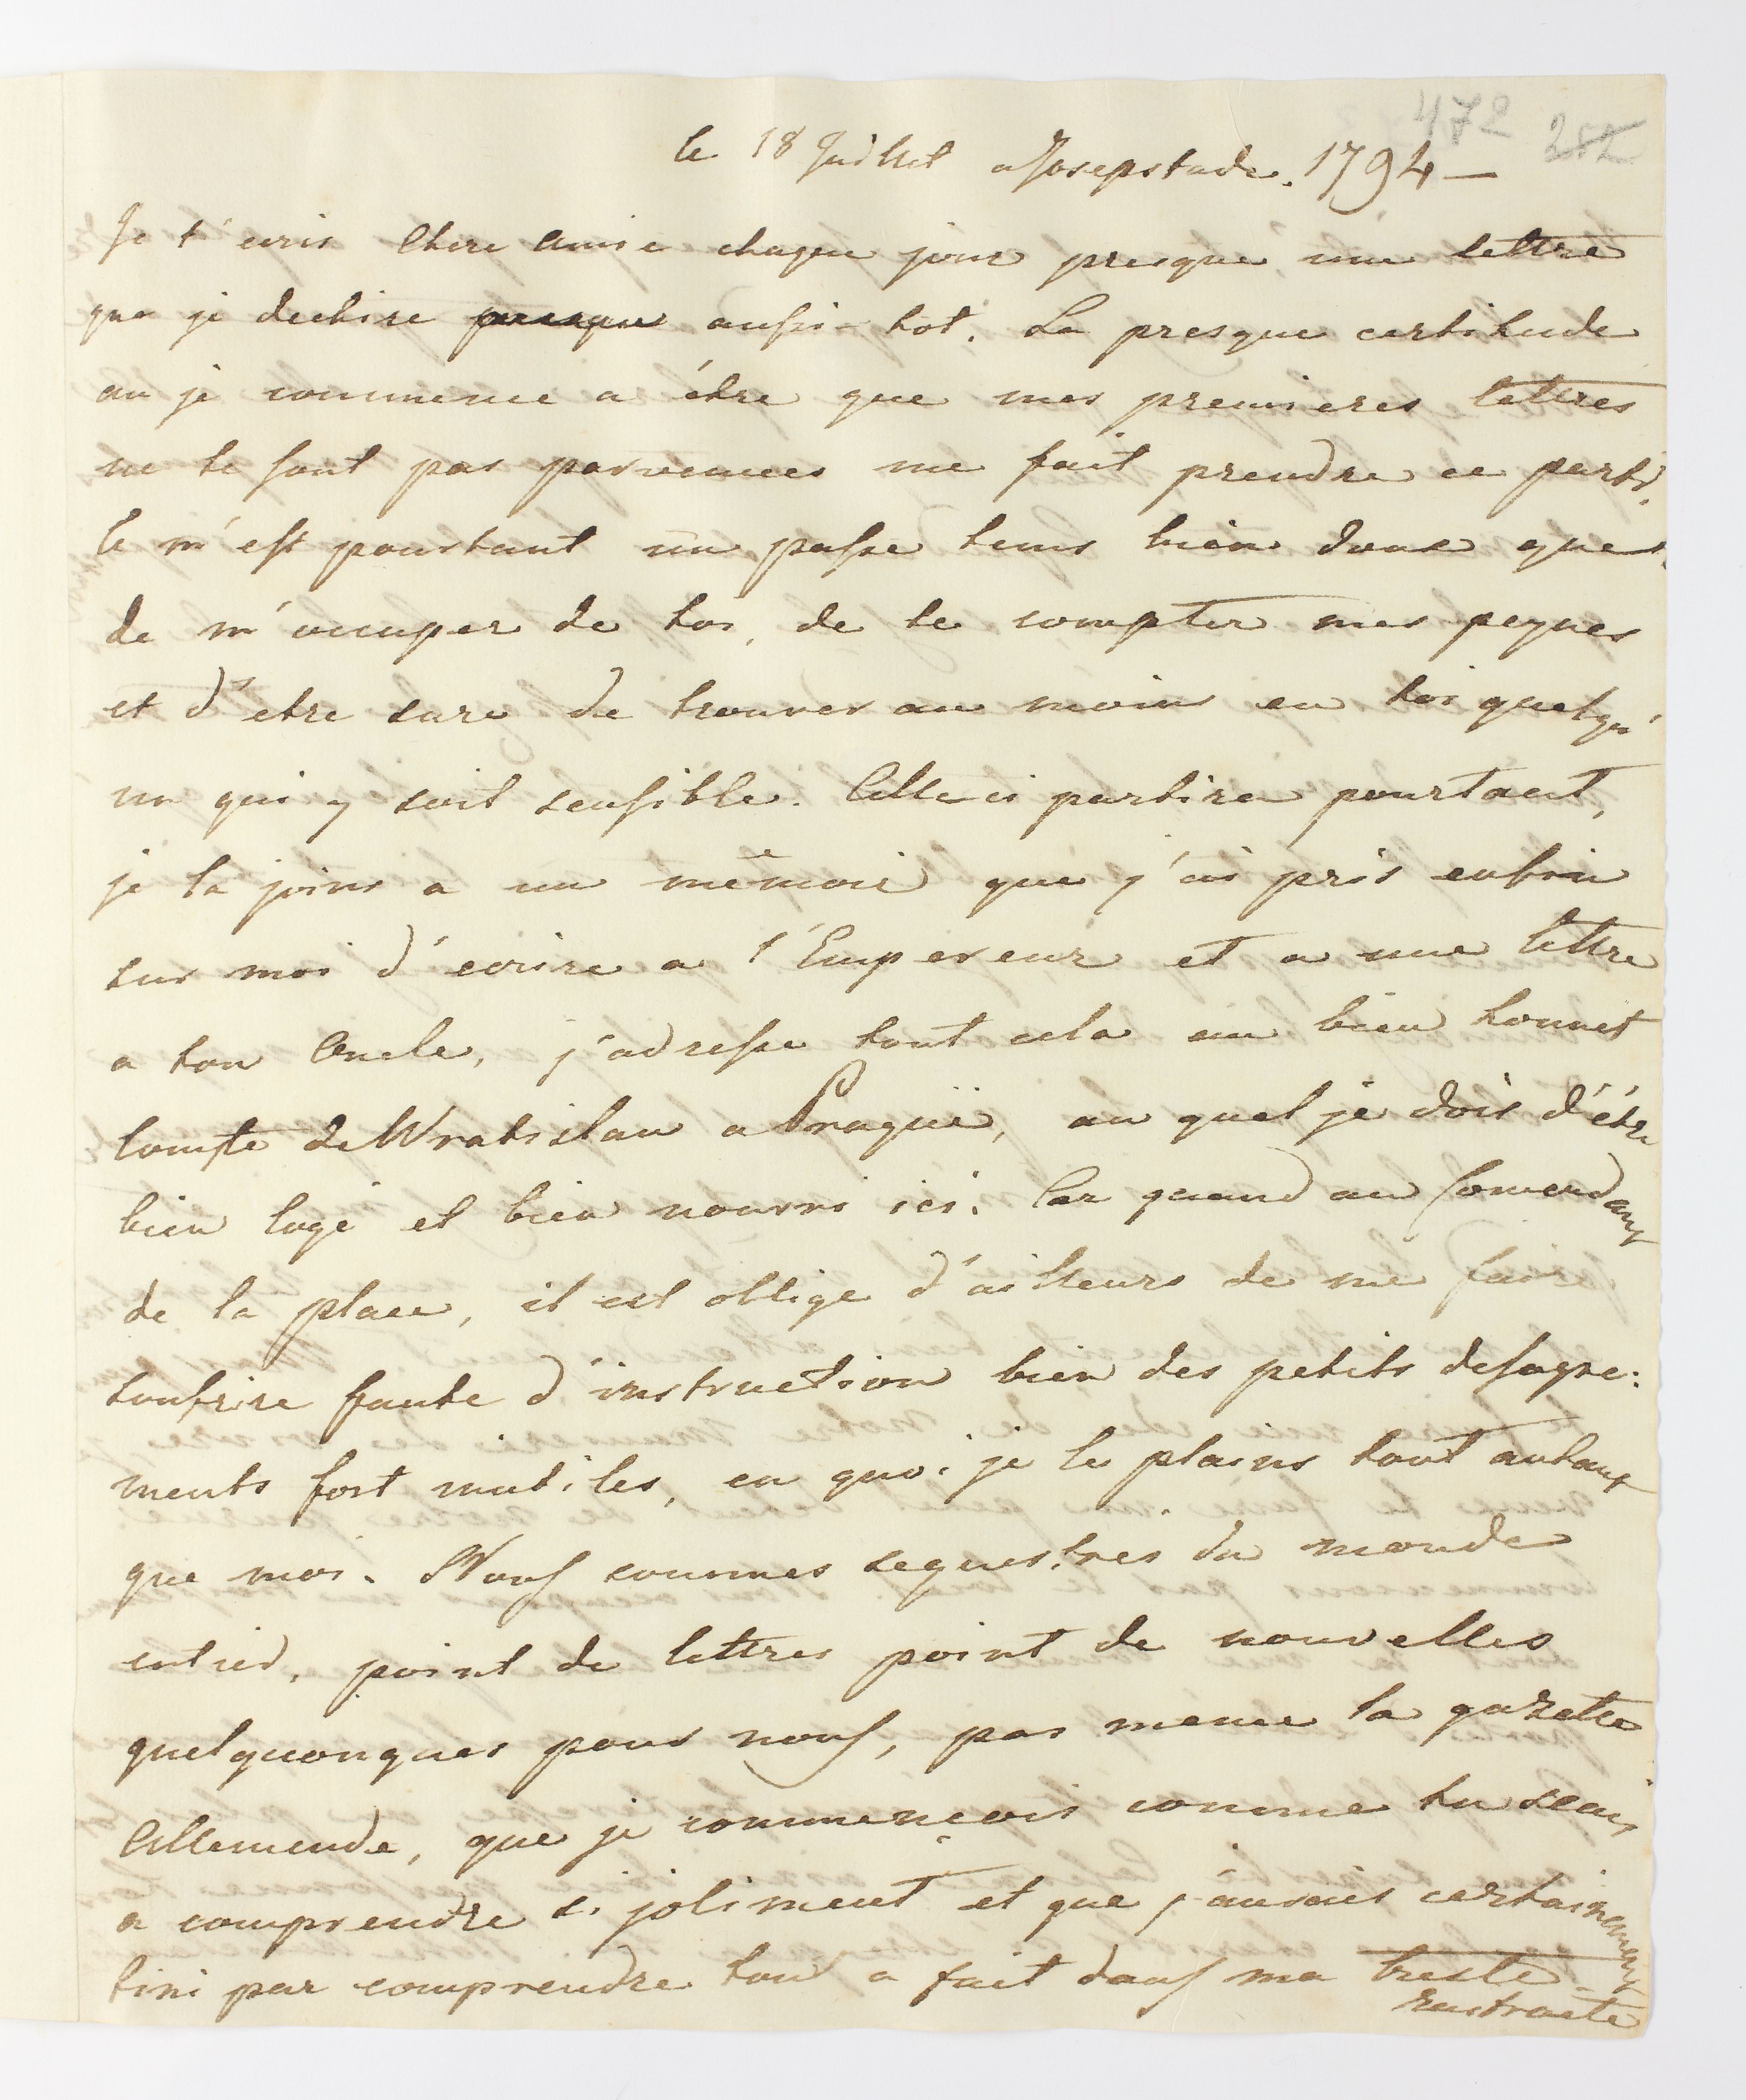 472 252
le 18 Juillet a Josepstade. 1794 —
Je t'ecris Chere Amie chaque jour presque une lettre
que je dechire presque aussi-tot. La presque certitude
ou je commence a être que mes premieres lettres
ne te sont pas parvenues me fait prendre ce parti.
Ce m'est pourtant un passe tems bien doux que
de m'occuper de toi, de te compter mes peynes
et d'etre sure de trouver au moins en toi quelqu'
un qui y soit sensible. Celle ci partira pourtant,
je la joins a un mémoire que j'ai pris enfin
sur moi d'ecrire a l'Empereur et a une lettre
a ton Oncle, j'adresse tout cela au bien honnet
Comte de Wratislau a Prague, au quel je dois d'être
bien logé et bien nourri ici. Car quand au Comendant
de la place, il est obligé d'ailleurs de me faire
soufrire faute d'instruction bien des petits desagre:
ments fort inutiles, en quoi je le plains tout autant
que moi. Nous sommes sequestrés du monde
entier, point de lettres point de nouvelles
quelquonques pour nous, pas meme la gazette
Allemende, que je commençois comme tu scais,
a comprendre si joliment et que j'aurais certainement
fini par comprendre tout a fait dans ma triste
rastraite